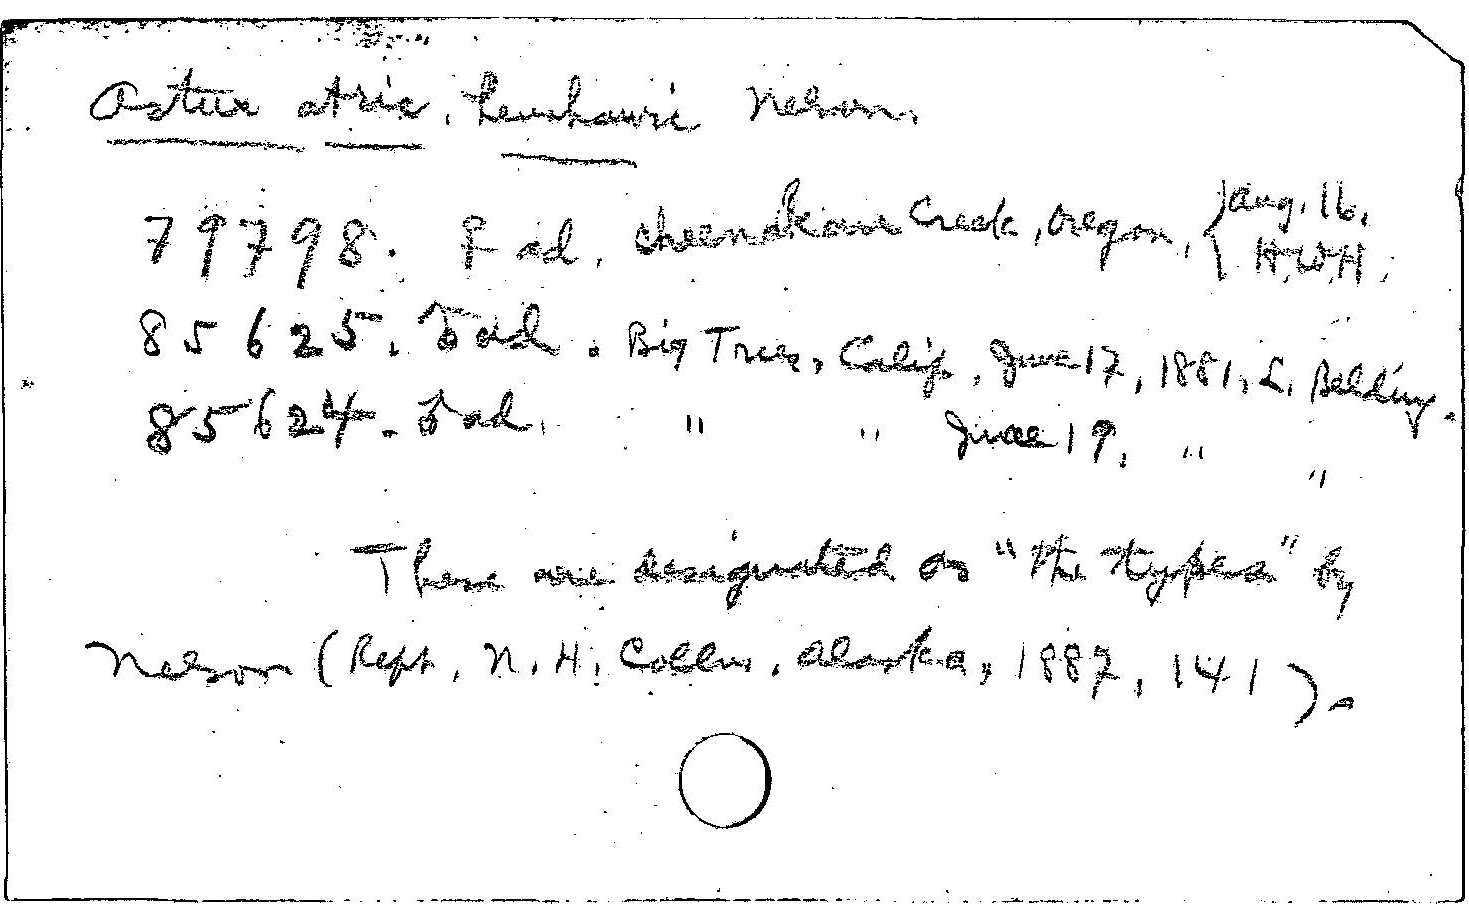 Astur atric. henshawi Nelson.
79798. ♀ ad. Creek, Oregon, { Aug. 16, H.W.H.
85625. ♂ ad. Big Trees, Calif., June 17, 1881, L. Belding.
85624. ♂ ad. " " June 19, " "
These are designated as "the types" by
Nelson (Rept. N. H. Colln. Alaska, 1887, 141).